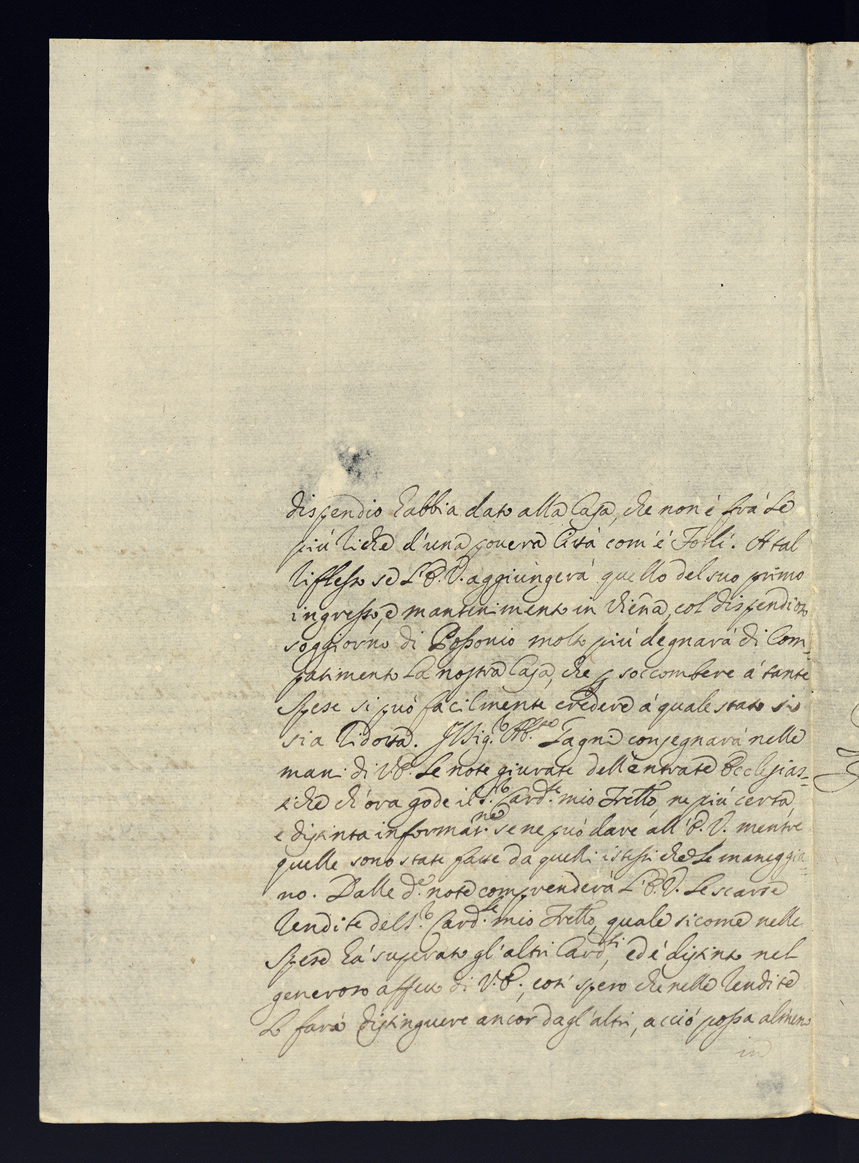 dispendio habbia dato alla Casa, che non é frá le
piú riche d'una povera Cittá com'é Forlí. A tal
riflesso se l'E.V. aggiungerá quello del suo primo
ingresso, e mantenimento in Vieña, col dispendioso
soggiorno di Possonio molto piú degnará di Com-
patimento la nostra Casa, che p soccombere á tante
spese si puó facilmente credere á quale stato si
sia ridotta. Il Sig.r Ab.e consegnará nelle
mani di V.E. le note giurate dell'entrate Ecclesias-
tiche ch'ora gode il S.r Card.le mio Fretto, ne piú certa,
e distinta informaz.ne se ne puó dare all'E.V. mentre
quelle sono state fatte da quelli istessi che le maneggia-
no. Dalle d.e note comprenderá l'E.V. le scarse
rendite del S.r Card.le mio Fretto, quale sicome nelle
spese há superato gl'altri Card.li, ed é distinto nel
generoso affetto di V.E., cosí spero che nelle rendite
lo fará distinguere ancor dagl'altri, acció possa almeno
in